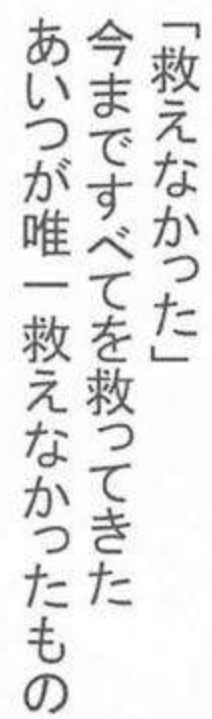 「救えなかった」
今まですべてを救ってきた
あいつが唯一救えなかったもの